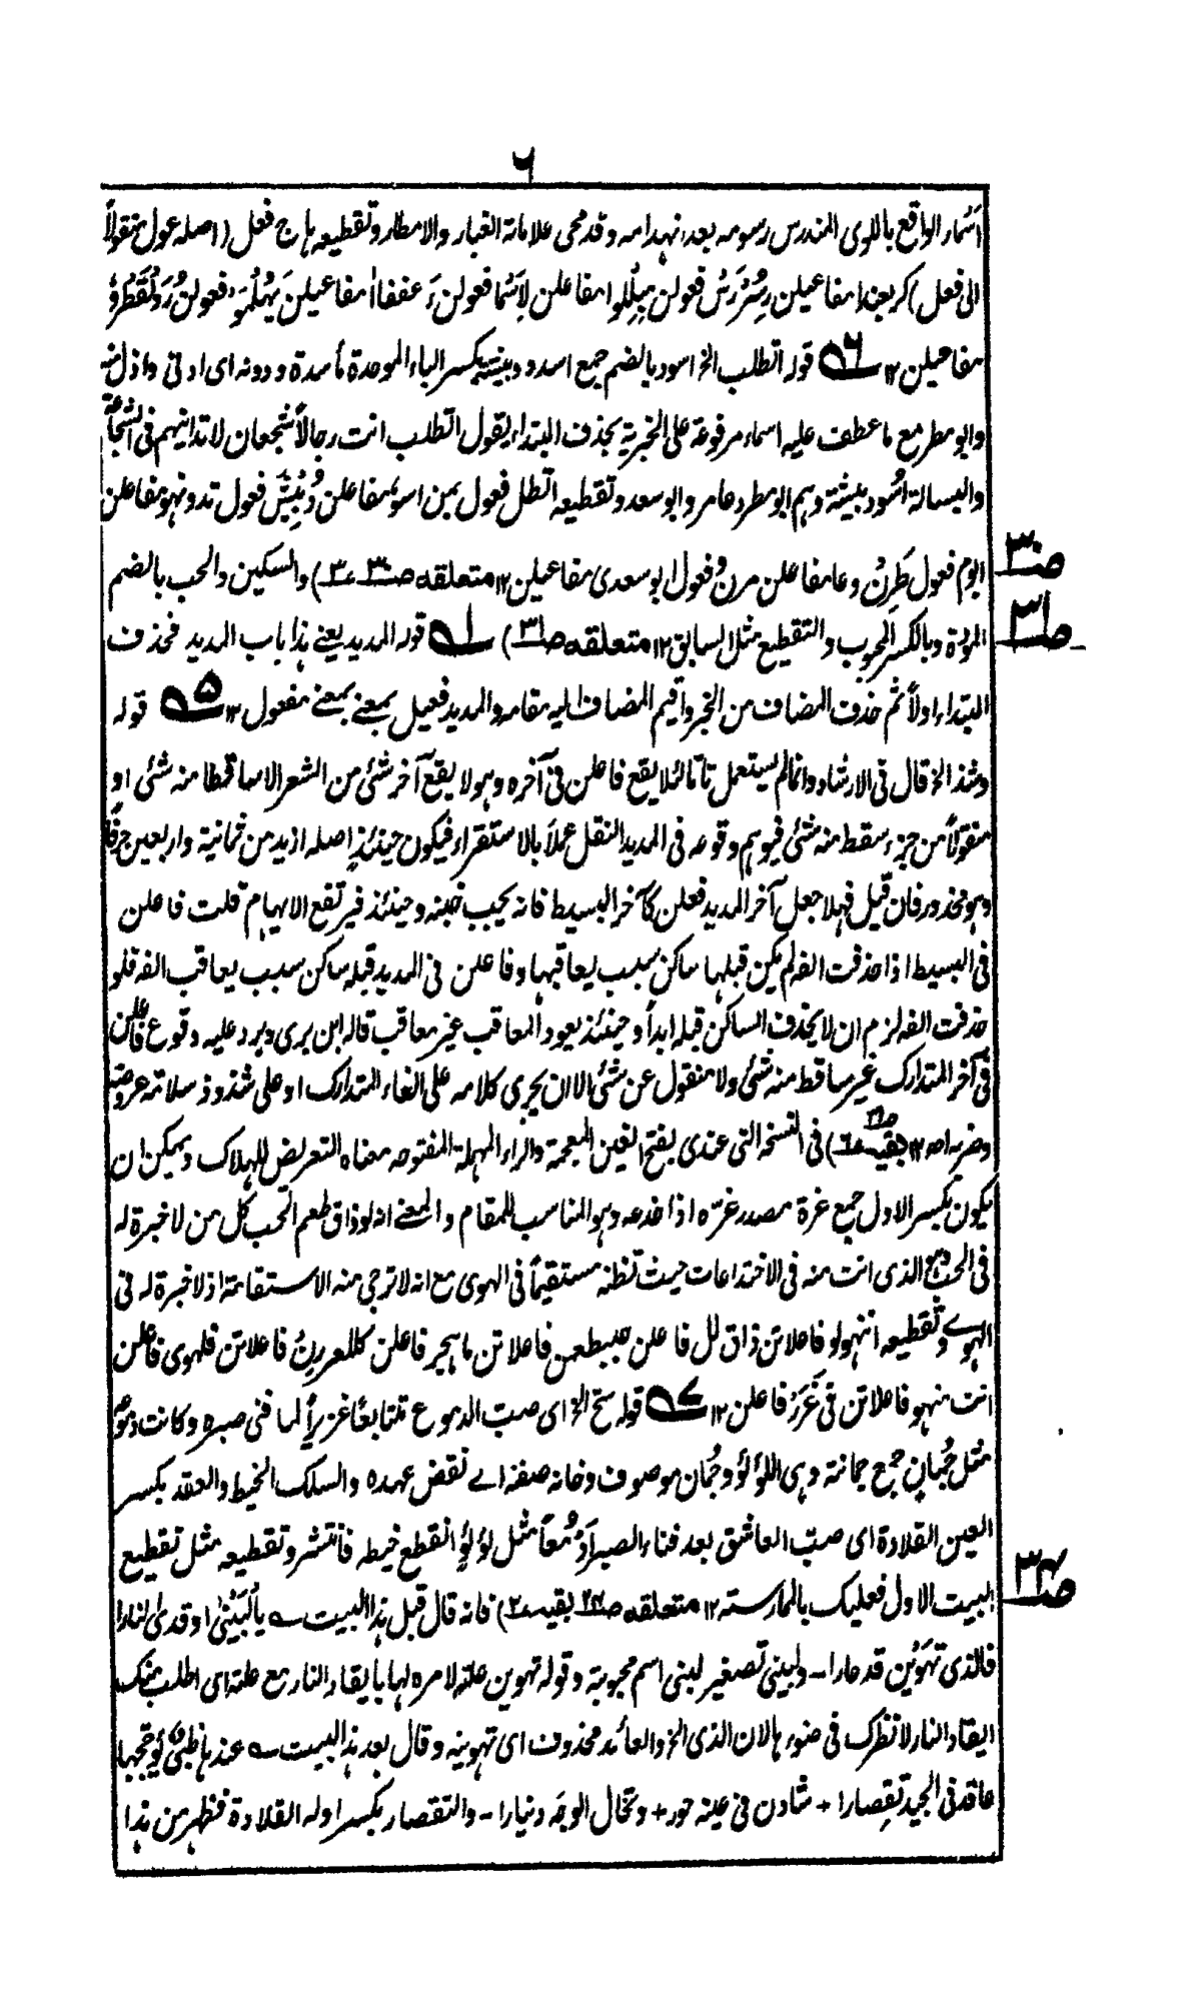 ٦
اسماء الواقع باللوى المندرس رسومه بعد انهدامه وقد محى علاماته الغبار والامطار وتقطيعه هاج فعل (اصله عول منقولاً
الى فعل) كربعندا مفاعيلن رسُنْ رَسُ فعولن بِلِّلوا مفاعلن لِأَسْمَا فعولن ءَ عففاأ مفاعيلن يَهُلْمُوْ فعولن رُوَلْقَطْرُوْ
مفاعيلن ١٢ ٦ قوله اتطلب الخ اسود بالضم جمع اسد وبيشة بكسر الباء الموحدة مأسدة ودونه اى ادنى واذل منه
وابو مطر مع ما عطف عليه اسماء مرفوعة على الخبرية بحذف المبتداء يقول اتطلب انت رجالاً شجعان لا تدانيهم فى الشجاعة
والبسالة اسُود بيشة وهم ابو مطر وعامر وابو سعد وتقطيعه اتطل فعول بمن اسو مفاعلن دُبِيْشَ فعول تدونهو مفاعلن
ابوم فعول طَرِنْ وعا مفاعلن مرن و فعول ابو سعدى مفاعيلن ١٢ متعلقه صـ٣٠) والسكين والحب بالضم
صـ٣٠
المودة وبالكسر المحبوب والتقطيع مثل السابق ١٢ متعلقه صـ٣١) ١ قوله المديد يعنى هذا باب المديد فحذف
صـ٣١
المبتداء اولاً ثم حذف المضاف من الخبر واقيم المضاف اليه مقامه والمديد فعيل بمعنى بمعنى مفعول ١٢ ٥ قوله
وشذ الخ قال فى الارشاد وانما لم يستعمل تاما لئلا يقع فاعلن فى آخره وهو لا يقع آخر شئ من الشعر الا ساقطا منه شئ او
منقولاً من جزء سقط منه شئ فيوهم وقوعه فى المديد النقل عملاً بالاستقراء فيكون حينئذٍ اصله ازيد من ثمانية واربعين حرفًا
وهو محذور فان قيل فهلا جعل آخر المديد فعلن كآخر البسيط فانه يجب خبنه وحينئذ فيرتفع الايهام قلت فاعلن
فى البسيط اذا حذفت الفه لم يكن قبلها ساكن سبب يعاقبها وفاعلن فى المديد قبله ساكن سبب يعاقب الفه فلو
حذفت الفه لزم ان لا يحذف الساكن قبله ابداً وحينئذ يعود المعاقب غير معاقب قاله ابن برى ويرد عليه وقوع فاعلن
فى آخر المتدارك غير ساقط منه شئ ولا منقول عن شئ الا ان يجرى كلامه على الغاء المتدارك او على شذوذ سلامة عروضه
وضربه اه ١٢ (بقيه) فى النسخة التى عندى بفتح الغين المعجمة والراء المهملة المفتوحه معناه التعريض للهلاك ويمكن ان
يكون بكسر الاول جمع غرة مصدر غرّه اذا خدعه وهو المناسب للمقام والمعنى انه لو ذاق طعم الحب كل من لا خبرة له
فى الحب الذى انت منه فى الاختداعات حيث تظنه مستقيماً فى الهوى مع انه لا ترجى منه الاستقامة اذ لا خبرة له فى
الهوى وتقطيعه انهو لو فاعلاتن ذاق لل فاعلن حبب طعمن فاعلاتن ما هجر فاعلن كللغررن فاعلاتن فلهوى فاعلن
انت منهو فاعلاتن فى غَرَرْ فاعلن ١٢ ٧ قوله سح الخ اى صب الدموع تتابعًا غزيراً لما فنى صبره وكانت دموعه
مثل جُمانٍ جمع جمانة وهى اللؤلؤ وجُمان موصوف وخانه صفته اے نقض عهده والسلك الخيط والعقد بكسر
العين القلادة اى صبّ العاشق بعد فناء الصبر دَمْعاً مثل لؤلؤٍ انقطع خيطه فانتشر وتقطيعه مثل تقطيع
البيت الاول فعليك بالممارسة ١٢ متعلقه صـ٣٤ بقيه ٢) فانه قال قبل هذا البيت يا لُبَيْنٰى اوقدى النارا
صـ٣٤
فالذى تهوَيْن قد حارا - ولبينى تصغير لبنى اسم محبوبة وقوله تهوين علة لامره لها بايقاد النار مع علته اى اطلب منك
ايقاد النار لانظرك فى ضوءها لان الذى الخ والعائد محذوف اى تهوينه وقال بعد هذا البيت عندها ظبى يؤججها
عاقد فى الجيد تقصارا + شادن فى عينه حور + وتخال الوجه دينارا - والتقصار بكسر اوله القلادة فظهر من هذا